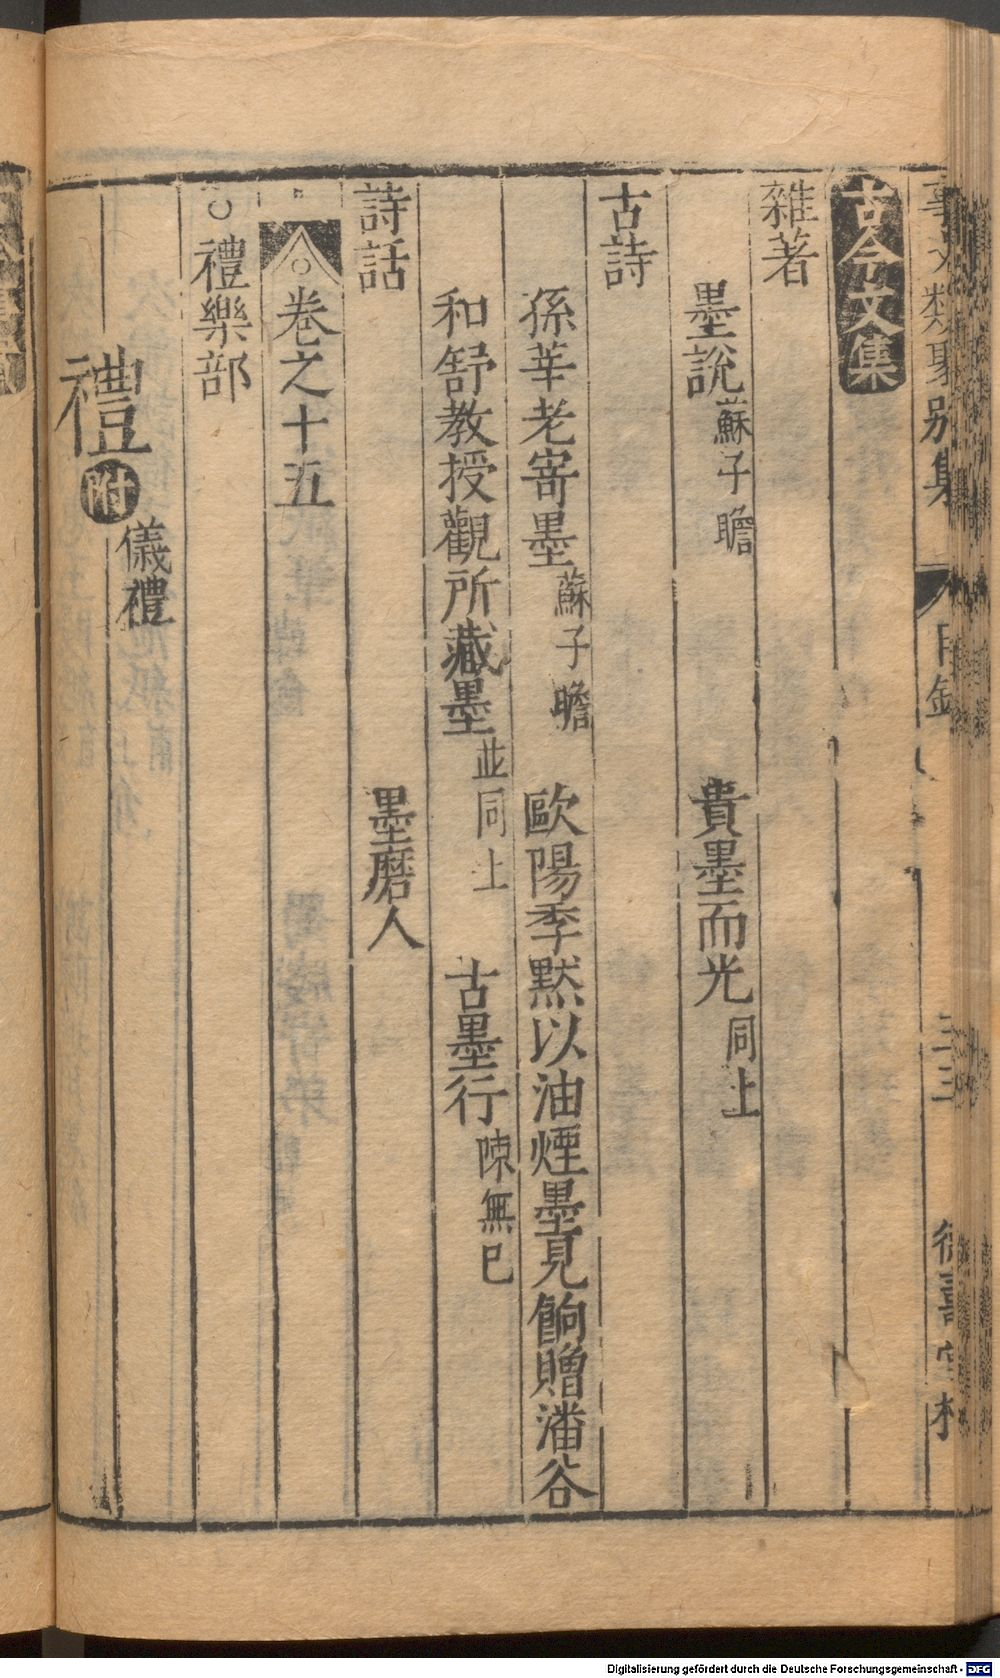 事文類聚別集
目錄
三三
德壽堂梓
古今文集
雜著
墨說 蘇子瞻 貴墨而光 同上
古詩
孫莘老寄墨 蘇子瞻 歐陽季默以油煙墨見餉贈潘谷
和舒教授觀所藏墨 並同上 古墨行 陳無已
詩話 墨磨人
○卷之十五
○禮樂部
禮 附 儀禮
Digitalisierung gefördert durch die Deutsche Forschungsgemeinschaft - DFG